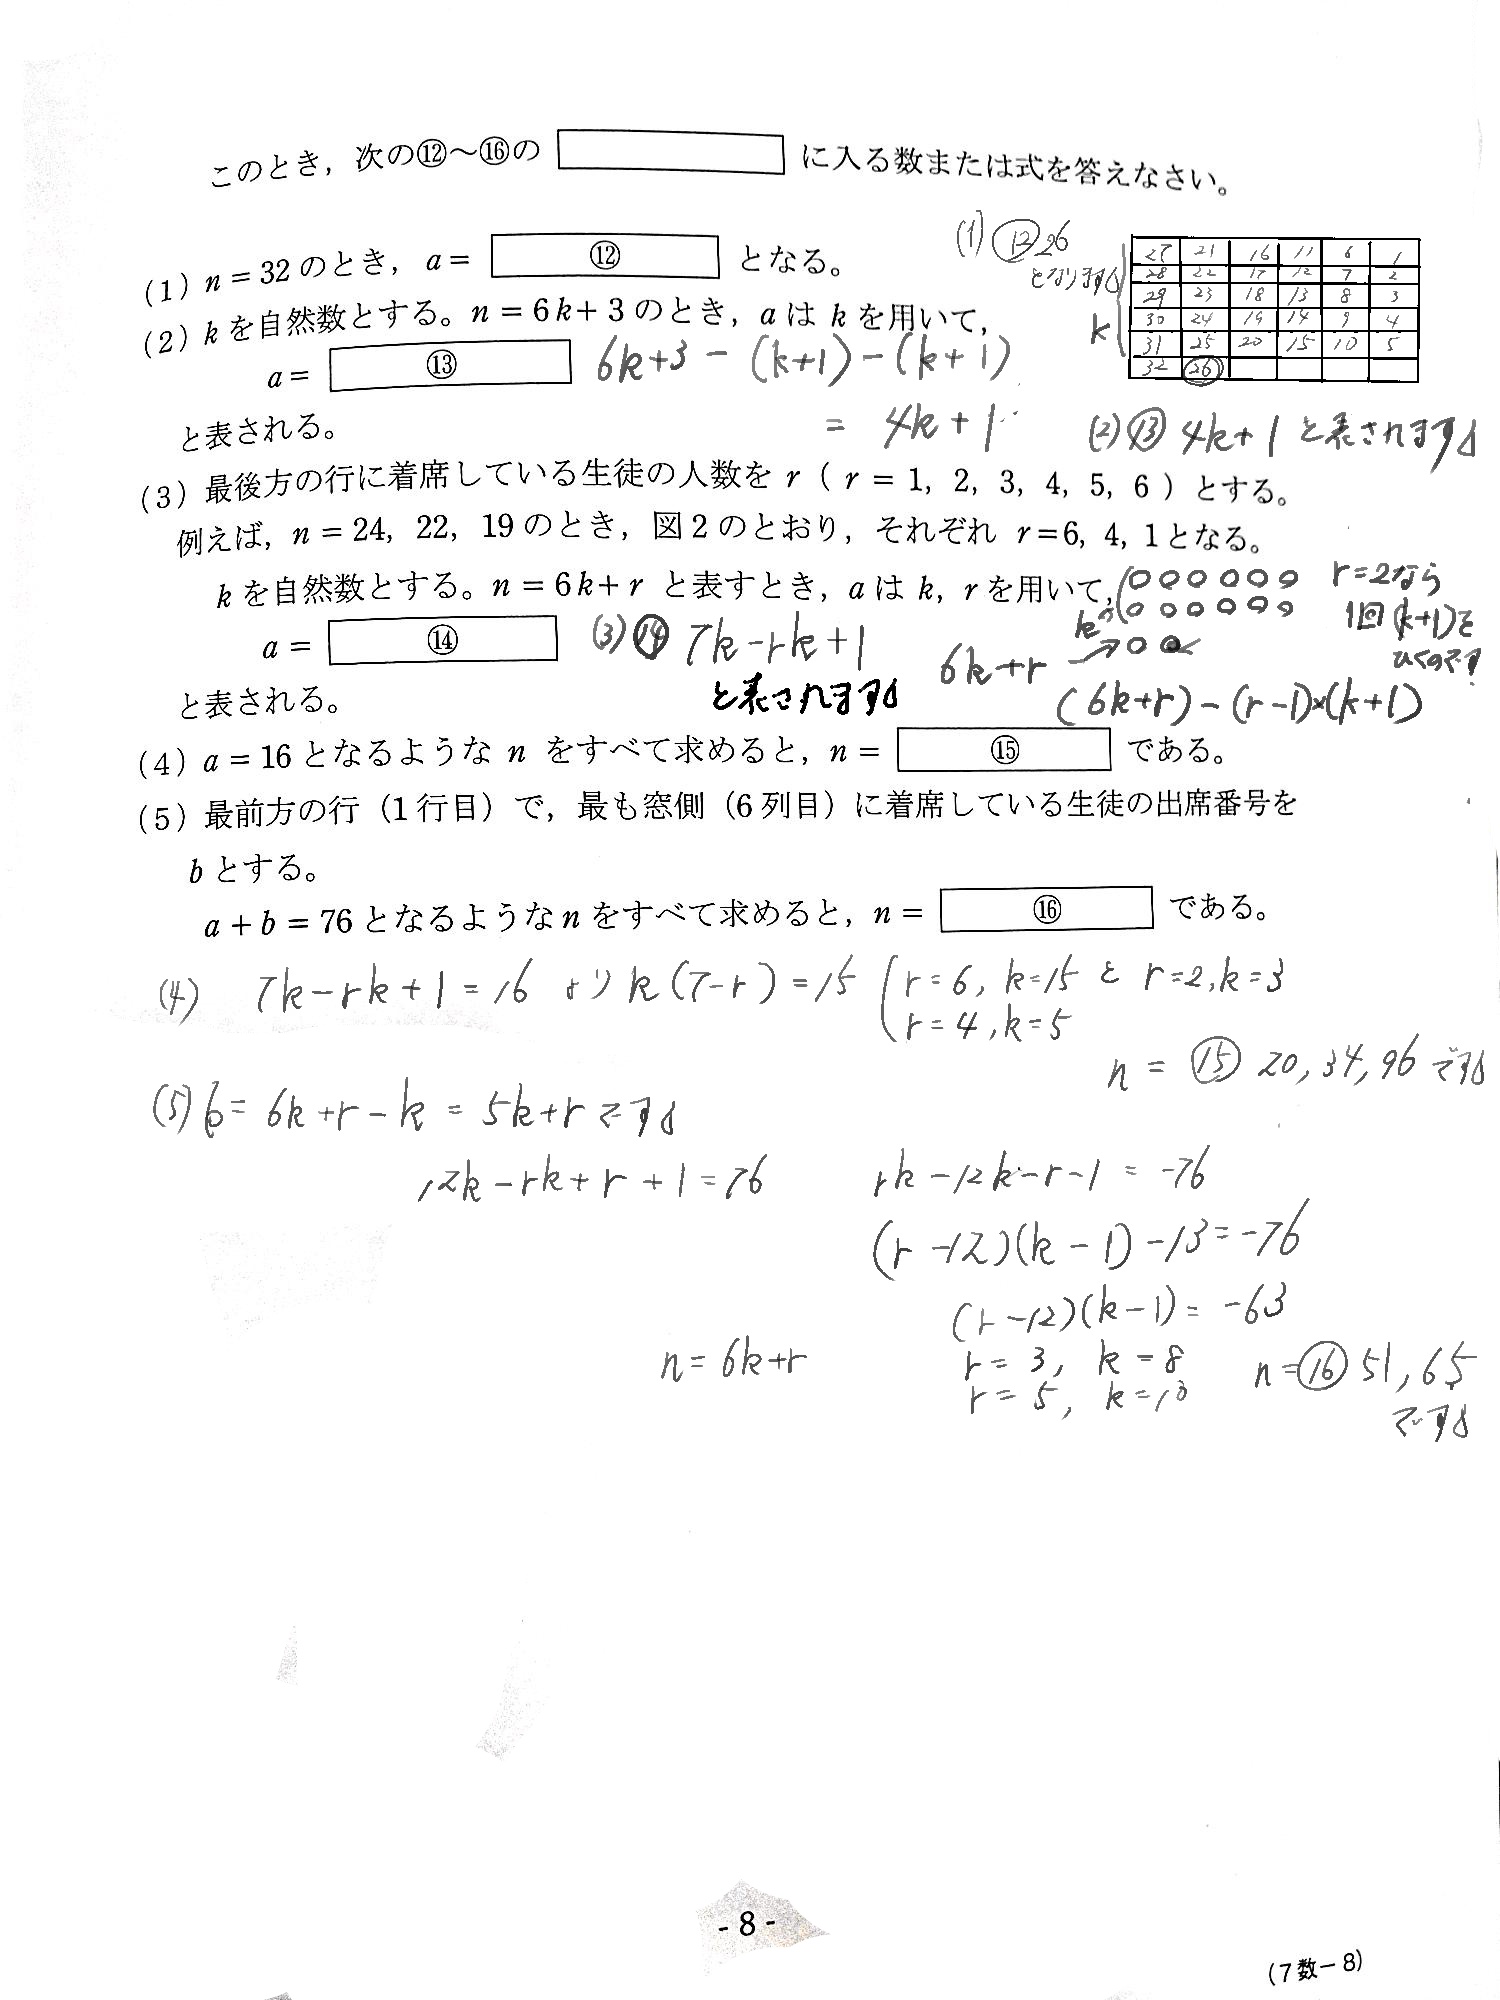 このとき，次の⑫～⑯の に入る数または式を答えなさい。
(1) n＝32のとき，a＝ ⑫ となる。
(1) ⑫26
となります
27 21 16 11 6 1
28 22 17 12 7 2
29 23 18 13 8 3
30 24 19 14 9 4
31 25 20 15 10 5
32 26
k
(2) kを自然数とする。n＝6k＋3のとき，aはkを用いて，
a＝ ⑬ 6k+3－(k+1)－(k+1)
= 4k+1
と表される。
(2)⑬ 4k+1 と表されます。
(3) 最後方の行に着席している生徒の人数をr（r＝1，2，3，4，5，6）とする。
例えば，n＝24，22，19のとき，図2のとおり，それぞれ r＝6，4，1となる。
kを自然数とする。n＝6k＋r と表すとき，aはk，rを用いて，
a＝ ⑭ (3)⑭ 7k-rk+1
と表されます。
と表される。
r=2なら
1回(k+1)を
ひくのです
6k+r
(6k+r)-(r-1)×(k+1)
(4) a＝16となるようなn をすべて求めると，n＝ ⑮ である。
(5) 最前方の行（1行目）で，最も窓側（6列目）に着席している生徒の出席番号を
bとする。
a＋b＝76となるようなnをすべて求めると，n＝ ⑯ である。
(4) 7k-rk+1=16 より k(7-r)=15 r=6, k=15 と r=2, k=3
r=4, k=5
n = ⑮ 20, 34, 96 です。
(5) b= 6k+r-k = 5k+r です。
12k-rk+r+1=76
rk-12k-r-1 = -76
(r-12)(k-1)-13=-76
(r-12)(k-1)= -63
n=6k+r
r=3, k=8
r=5, k=10
n=⑯ 51, 65
です。
- 8 -
(7数－8)